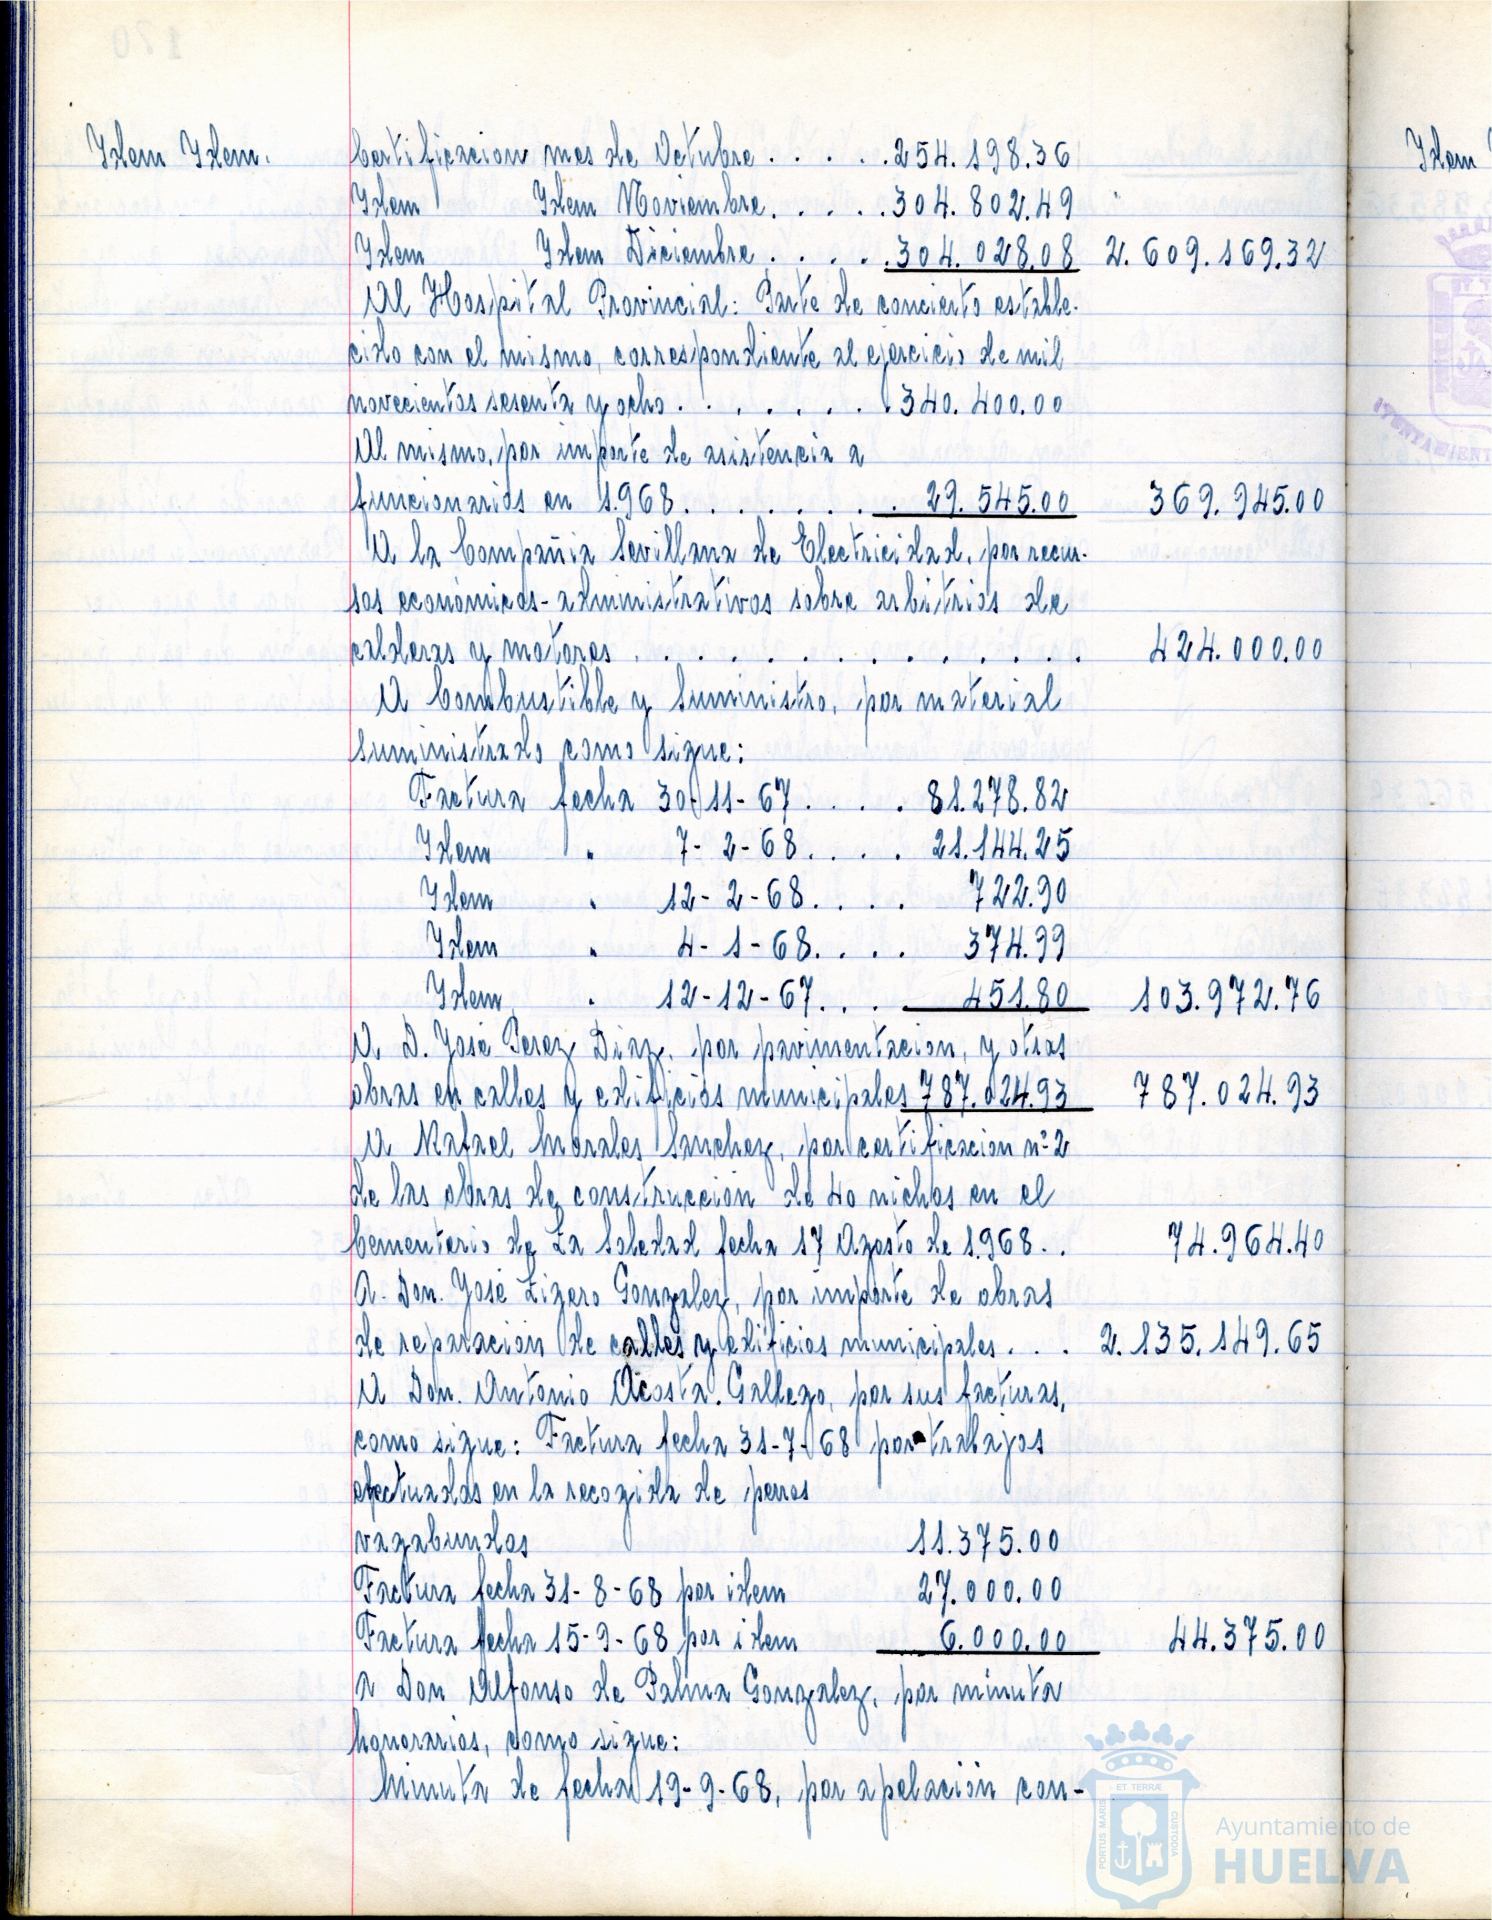 Idem Idem. Certificacion mes de Octubre . . . . . 254.198.36
Idem Idem Noviembre. . . . . . 304.802.49
Idem Idem Diciembre . . . . . 304.028.08 2.609.169.32
Al Hospital Provincial: Parte de concierto estable-
cido con el mismo, correspondiente al ejercicio de mil
novecientos sesenta y ocho . . . . . . . . 340.400.00
Al mismo, por importe de asistencia a
funcionarios en 1.968. . . . . . . . 29.545.00 369.945.00
A la Compañia Sevillana de Electricidad, por recur-
sos económicos-administrativos sobre arbitrios de
calderas y motores . . . . . . . . . . . . . 424.000.00
A Combustible y Suministro, por material
suministrado como sigue:
Factura fecha 30-11-67 . . . . 81.278.82
Idem " 7-2-68. . . . 21.144.25
Idem " 12-2-68. . . . 722.90
Idem " 4-1-68. . . . 374.99
Idem " 12-12-67. . . 451.80 103.972.76
A D. José Perez Diaz, por pavimentacion, y otras
obras en calles y edificios municipales 787.024.93 787.024.93
A Rafael Morales Sanchez, por certificacion nº 2
de las obras de construccion de 40 nichos en el
Cementerio de La Soledad fecha 17 Agosto de 1.968. . 74.964.40
A. Don. José Ligero Gonzalez, por importe de obras
de reparación de calles y edificios municipales . . . 2.135.149.65
A Don. Antonio Acosta. Gallego, por sus facturas,
como sigue: Factura fecha 31-7-68 por trabajos
efectuados en la recogida de perros
vagabundos 11.375.00
Factura fecha 31-8-68 por idem 27.000.00
Factura fecha 15-9-68 por idem 6.000.00 44.375.00
a Don Alfonso de Palma Gonzalez, por minuta
honorarios, como sigue:
Minuta de fecha 19-9-68, por apelación con-
Idem
ET TERRÆ
PORTUS MARIS
CUSTODIA
Ayuntamiento de
HUELVA